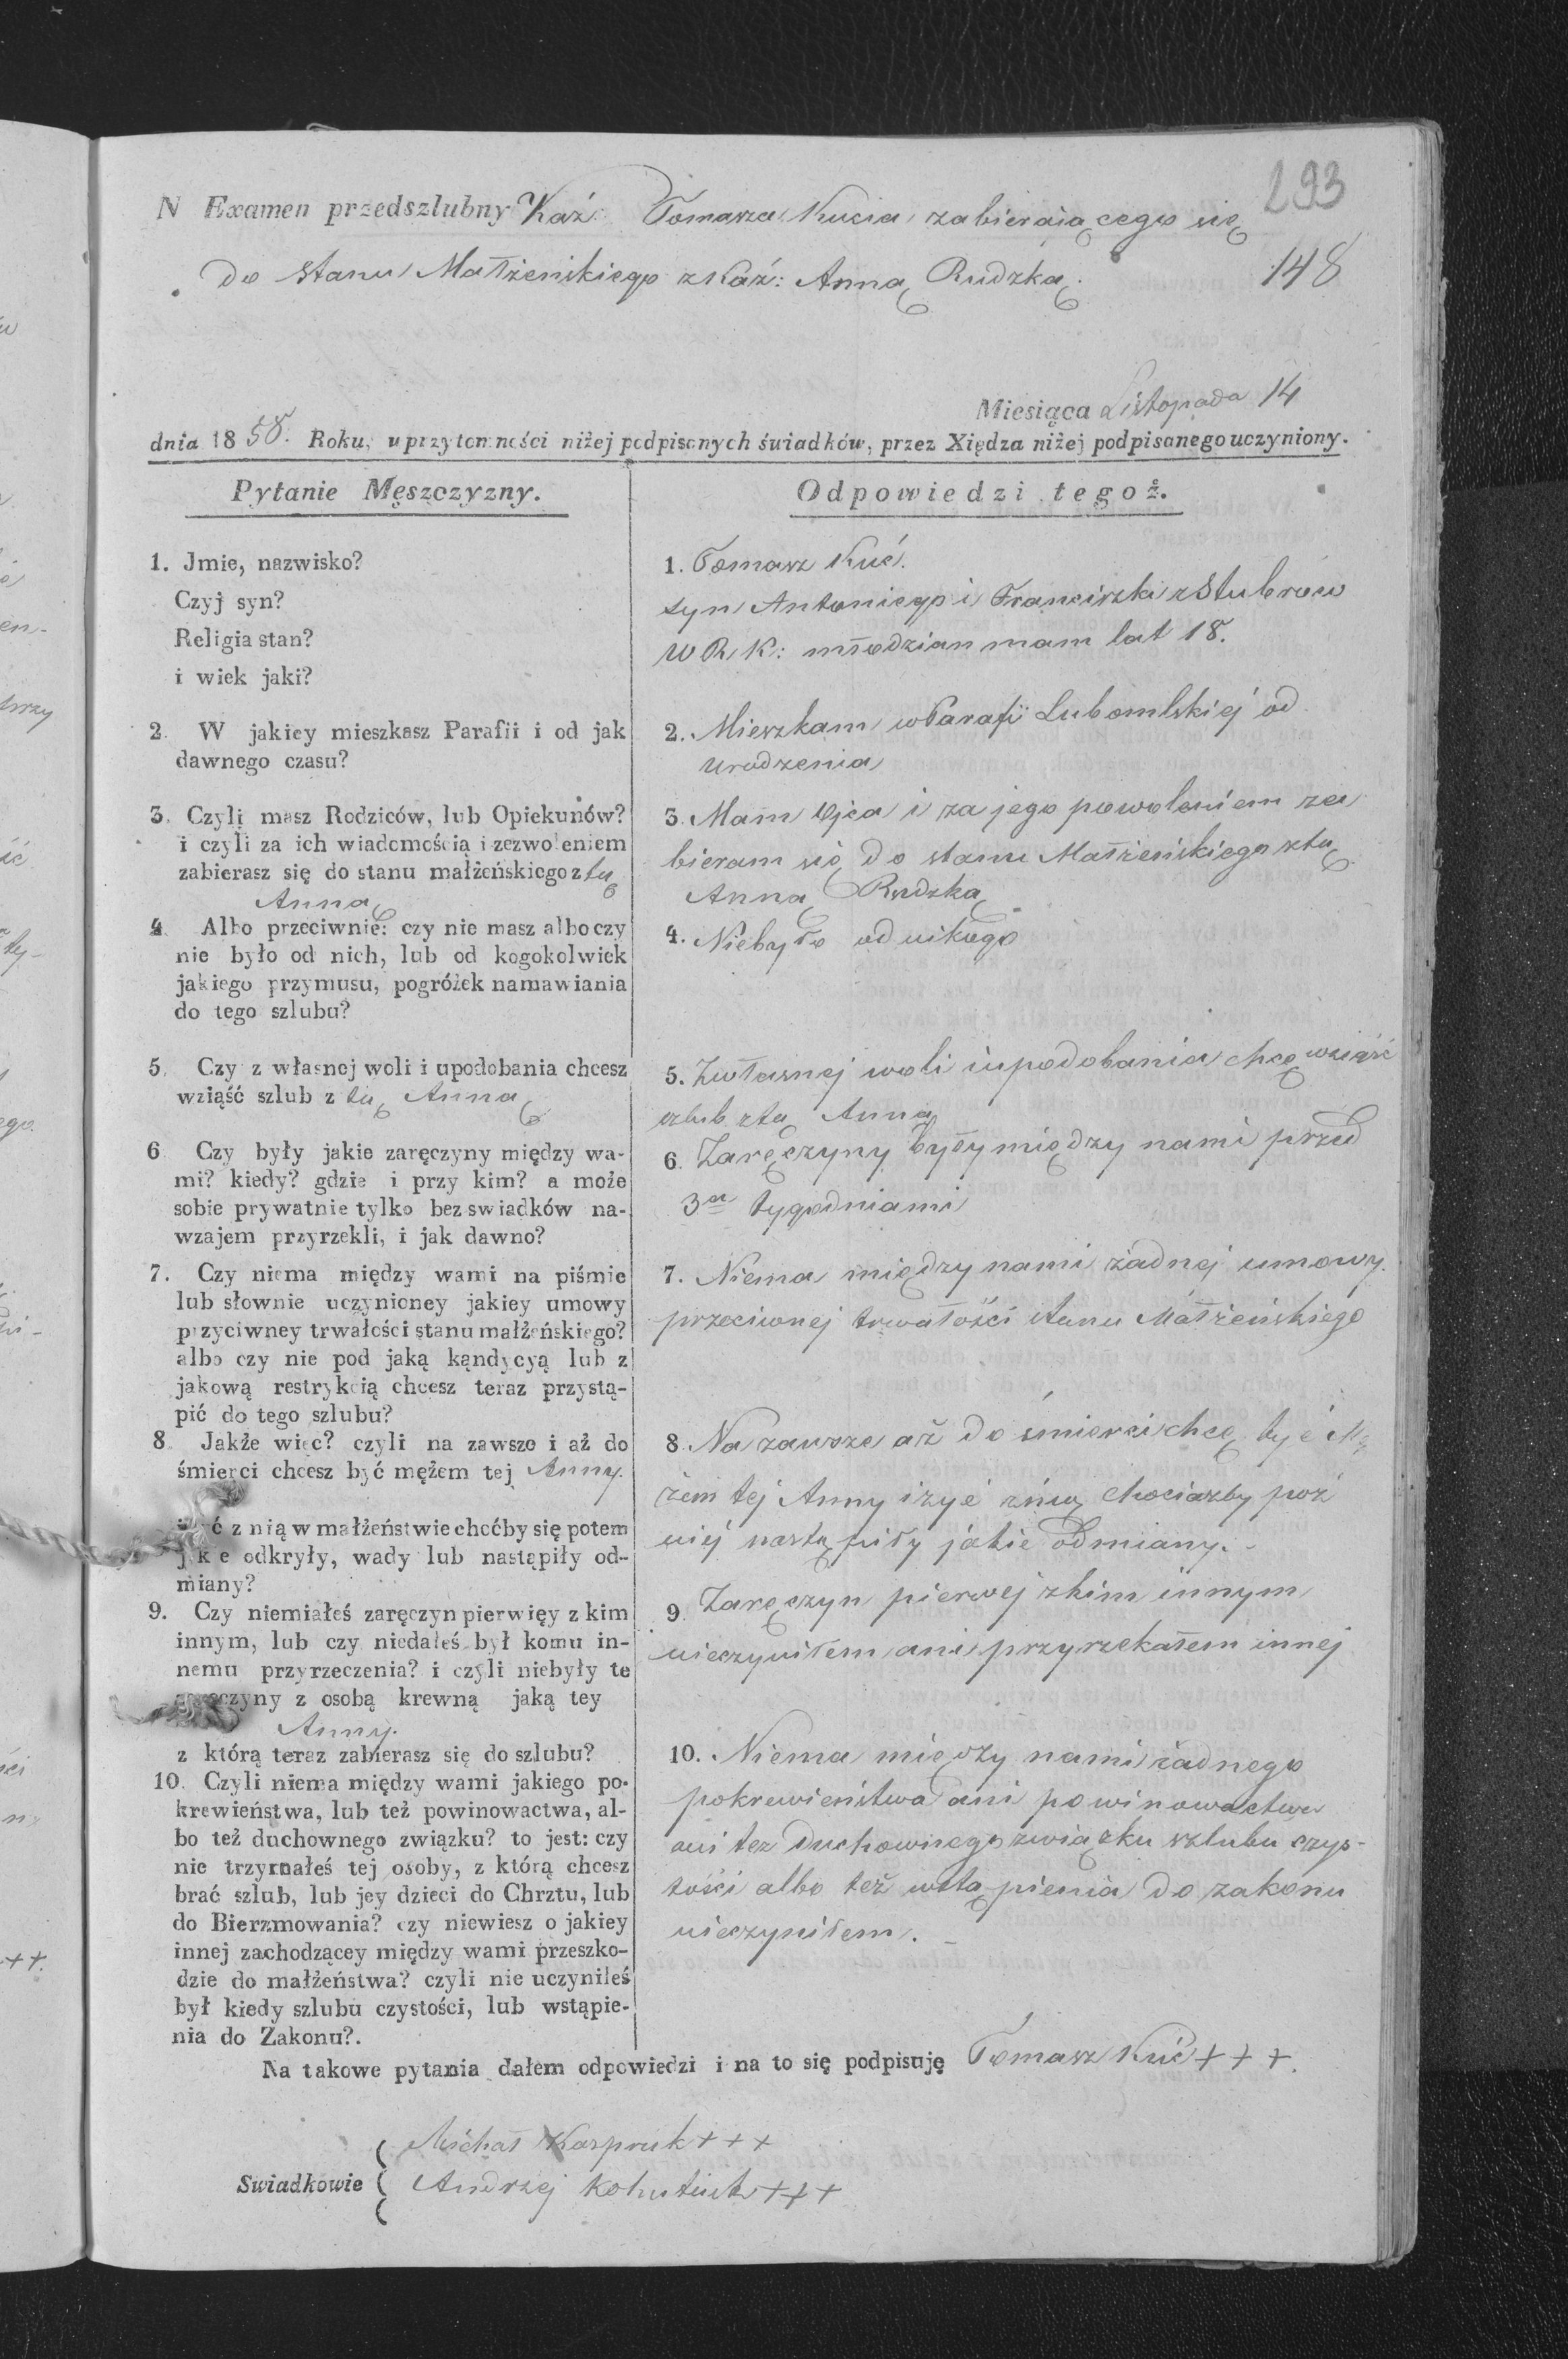 293
N Examen przedszlubny Kaź: Tomasza Kucia zabierającego się
do stanu Małżeńskiego z Kaź: Anną Rudzką.
148
Miesiąca Listopada 14
dnia 1858. Roku, u przytomności niżej podpisanych świadków, przez Xiędza niżej podpisanego uczyniony.
Pytanie Męszczyzny.
1. Jmie, nazwisko?
Czyj syn?
Religia stan?
i wiek jaki?
2. W jakiey mieszkasz Parafii i od jak
dawnego czasu?
3. Czyli masz Rodziców, lub Opiekunów?
i czyli za ich wiadomością i zezwoleniem
zabierasz się do stanu małżeńskiego z tą
Anną
4. Albo przeciwnie: czy nie masz albo czy
nie było od nich, lub od kogokolwiek
jakiego przymusu, pogróżek namawiania
do tego szlubu?
5. Czy z własnej woli i upodobania chcesz
wziąść szlub z tą Anną
6 Czy były jakie zaręczyny między wa-
mi? kiedy? gdzie i przy kim? a może
sobie prywatnie tylko bez swiadków na-
wzajem przyrzekli, i jak dawno?
7. Czy niema między wami na piśmie
lub słownie uczynioney jakiey umowy
przyciwney trwałości stanu małżeńskiego?
albo czy nie pod jaką kądycyą lub z
jakową restrykcią chcesz teraz przystą-
pić do tego szlubu?
8. Jakże wiec? czyli na zawsze i aż do
śmierci chcesz być mężem tej Anny.
z nią w małżeństwie choćby się potem
odkryły, wady lub nastąpiły od-
miany?
9. Czy niemiałeś zaręczyn pierwięy z kim
innym, lub czy niedałeś był komu in-
nemu przyrzeczenia? i czyli niebyły te
zaręczyny z osobą krewną jaką tey
Anny.
z którą teraz zabierasz się do szlubu?
10. Czyli niema między wami jakiego po-
krewieństwa, lub też powinowactwa, al-
bo też duchownego związku? to jest: czy
nie trzymałeś tej osoby, z którą chcesz
brać szlub, lub jey dzieci do Chrztu, lub
do Bierzmowania? czy niewiesz o jakiey
innej zachodzącey między wami przeszko-
dzie do małżeństwa? czyli nie uczyniłeś
był kiedy szlubu czystości, lub wstąpie-
nia do Zakonu?.
Odpowiedzi tegoż.
1. Tomasz Kuć.
syn Antoniego i Franciszki z Stubrów
W R K: młodzian mam lat 18.
2. Mieszkam w Parafii Lubomlskiéj od
urodzenia
3. Mam Ojca i za jego powoleniem za
bieram się do stanu Małżeńskiego z tą
Anną Rudzką
4. Niebyło od nikogo
5. Zwłasnej woli i upodobania chcę wziąść
szlub z tą Anną
6. Zaręczyny były między nami przed
3ma tygodniami
7. Niema między nami żadnej umowy
przeciwnej trwałości stanu Małżeńskiego
8. Na zawsze aż do śmierci chcę być Mę
żem tej Anny i żyć z nią chociażby póź
niéj nastąpiły jakie odmiany. -
9. Zaręczyn pierwej z kim innym
nieczyniłem ani przyrzekałem innej
10. Niema między nami żadnego
pokrewieństwa ani powinowactwa
ani też Duchownego związku szlubu czys-
tości albo też wstąpienia do zakonu
nieczyniłem. -
Na takowe pytania dałem odpowiedzi i na to się podpisuję Tomasz Kuć + + +.
Swiadkowie
Michał Kaspruk + + +
Andrzej + + +